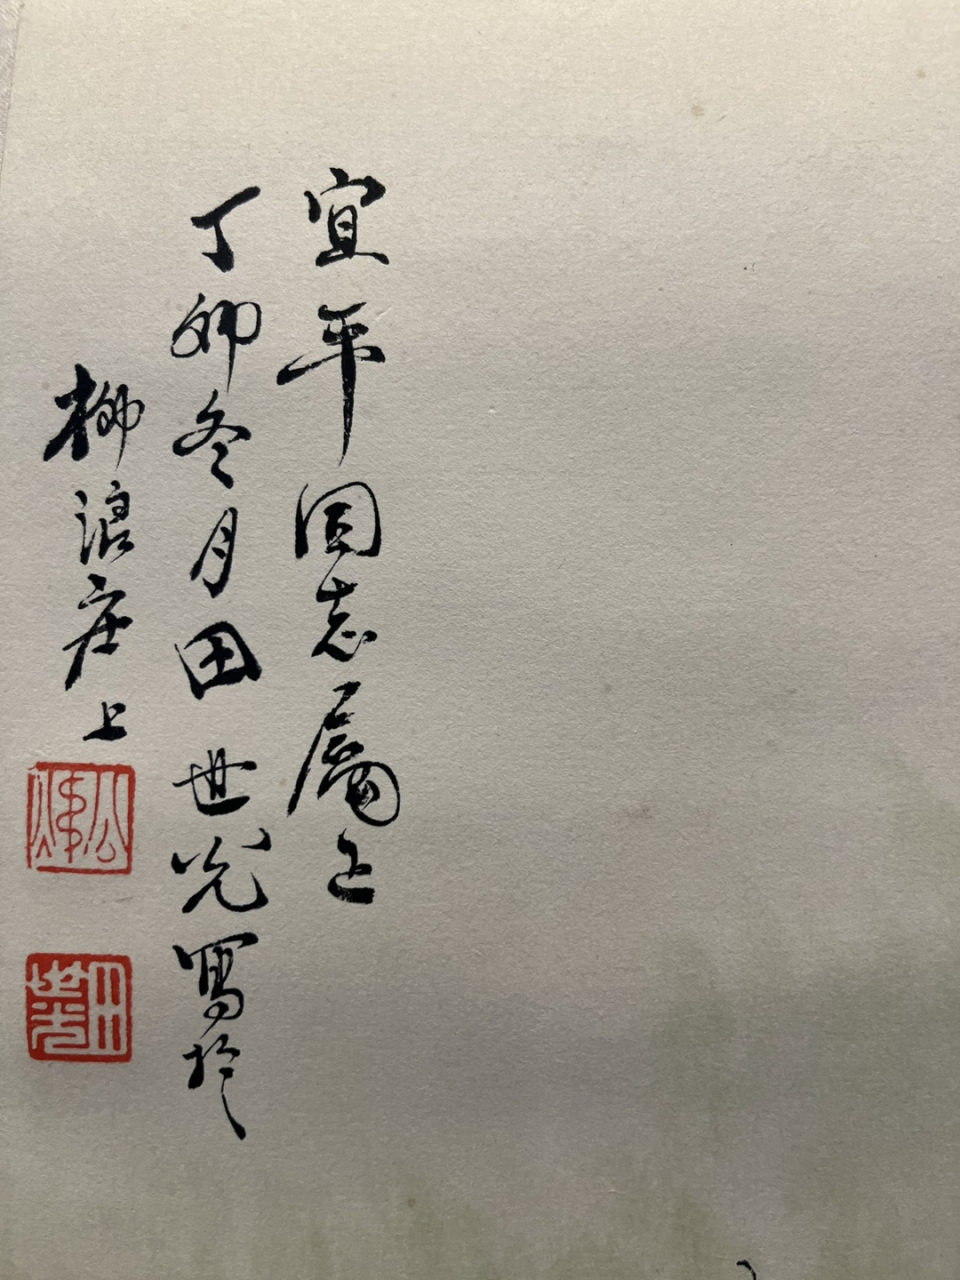 宜平同志屬正
丁卯冬月田世光寫於
柳浪庄上
公煒
田世光